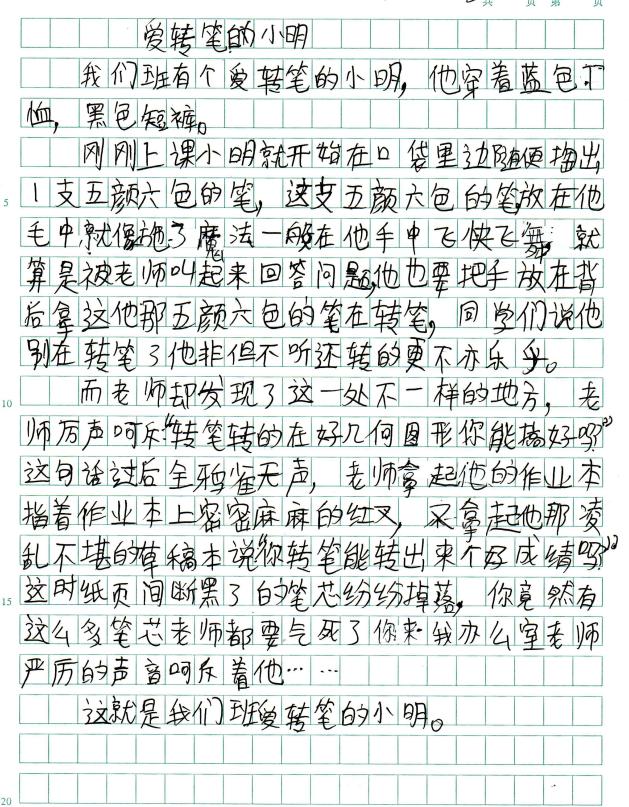 共 页 第 页
爱转笔的小明
我们班有个爱转笔的小明，他穿着蓝色T
恤，黑色短裤。
刚刚上课小明就开始在口袋里边随便掏出
5
1支五颜六色的笔，这支五颜六色的笔放在他
毛中就像施了魔法一般在他手中飞快飞舞，就
算是被老师叫起来回答问题，他也要把手放在背
后拿这他那五颜六色的笔在转笔，同学们说他
别在转笔了他非但不听还转的更不亦乐乎。
10
而老师却发现了这一处不一样的地方，老
师厉声呵斥“转笔转的在好几何图形你能搞好吗？”
这句话过后全鸦雀无声，老师拿起他的作业本
指着作业本上密密麻麻的红叉，又拿起他那凌
乱不堪的草稿本说“你转笔能转出来个好成绩吗？”
15
这时纸页间断黑了的笔芯纷纷掉落，你竟然有
这么多笔芯老师都要气死了你来我办公室老师
严厉的声音呵斥着他……
这就是我们班爱转笔的小明。
20